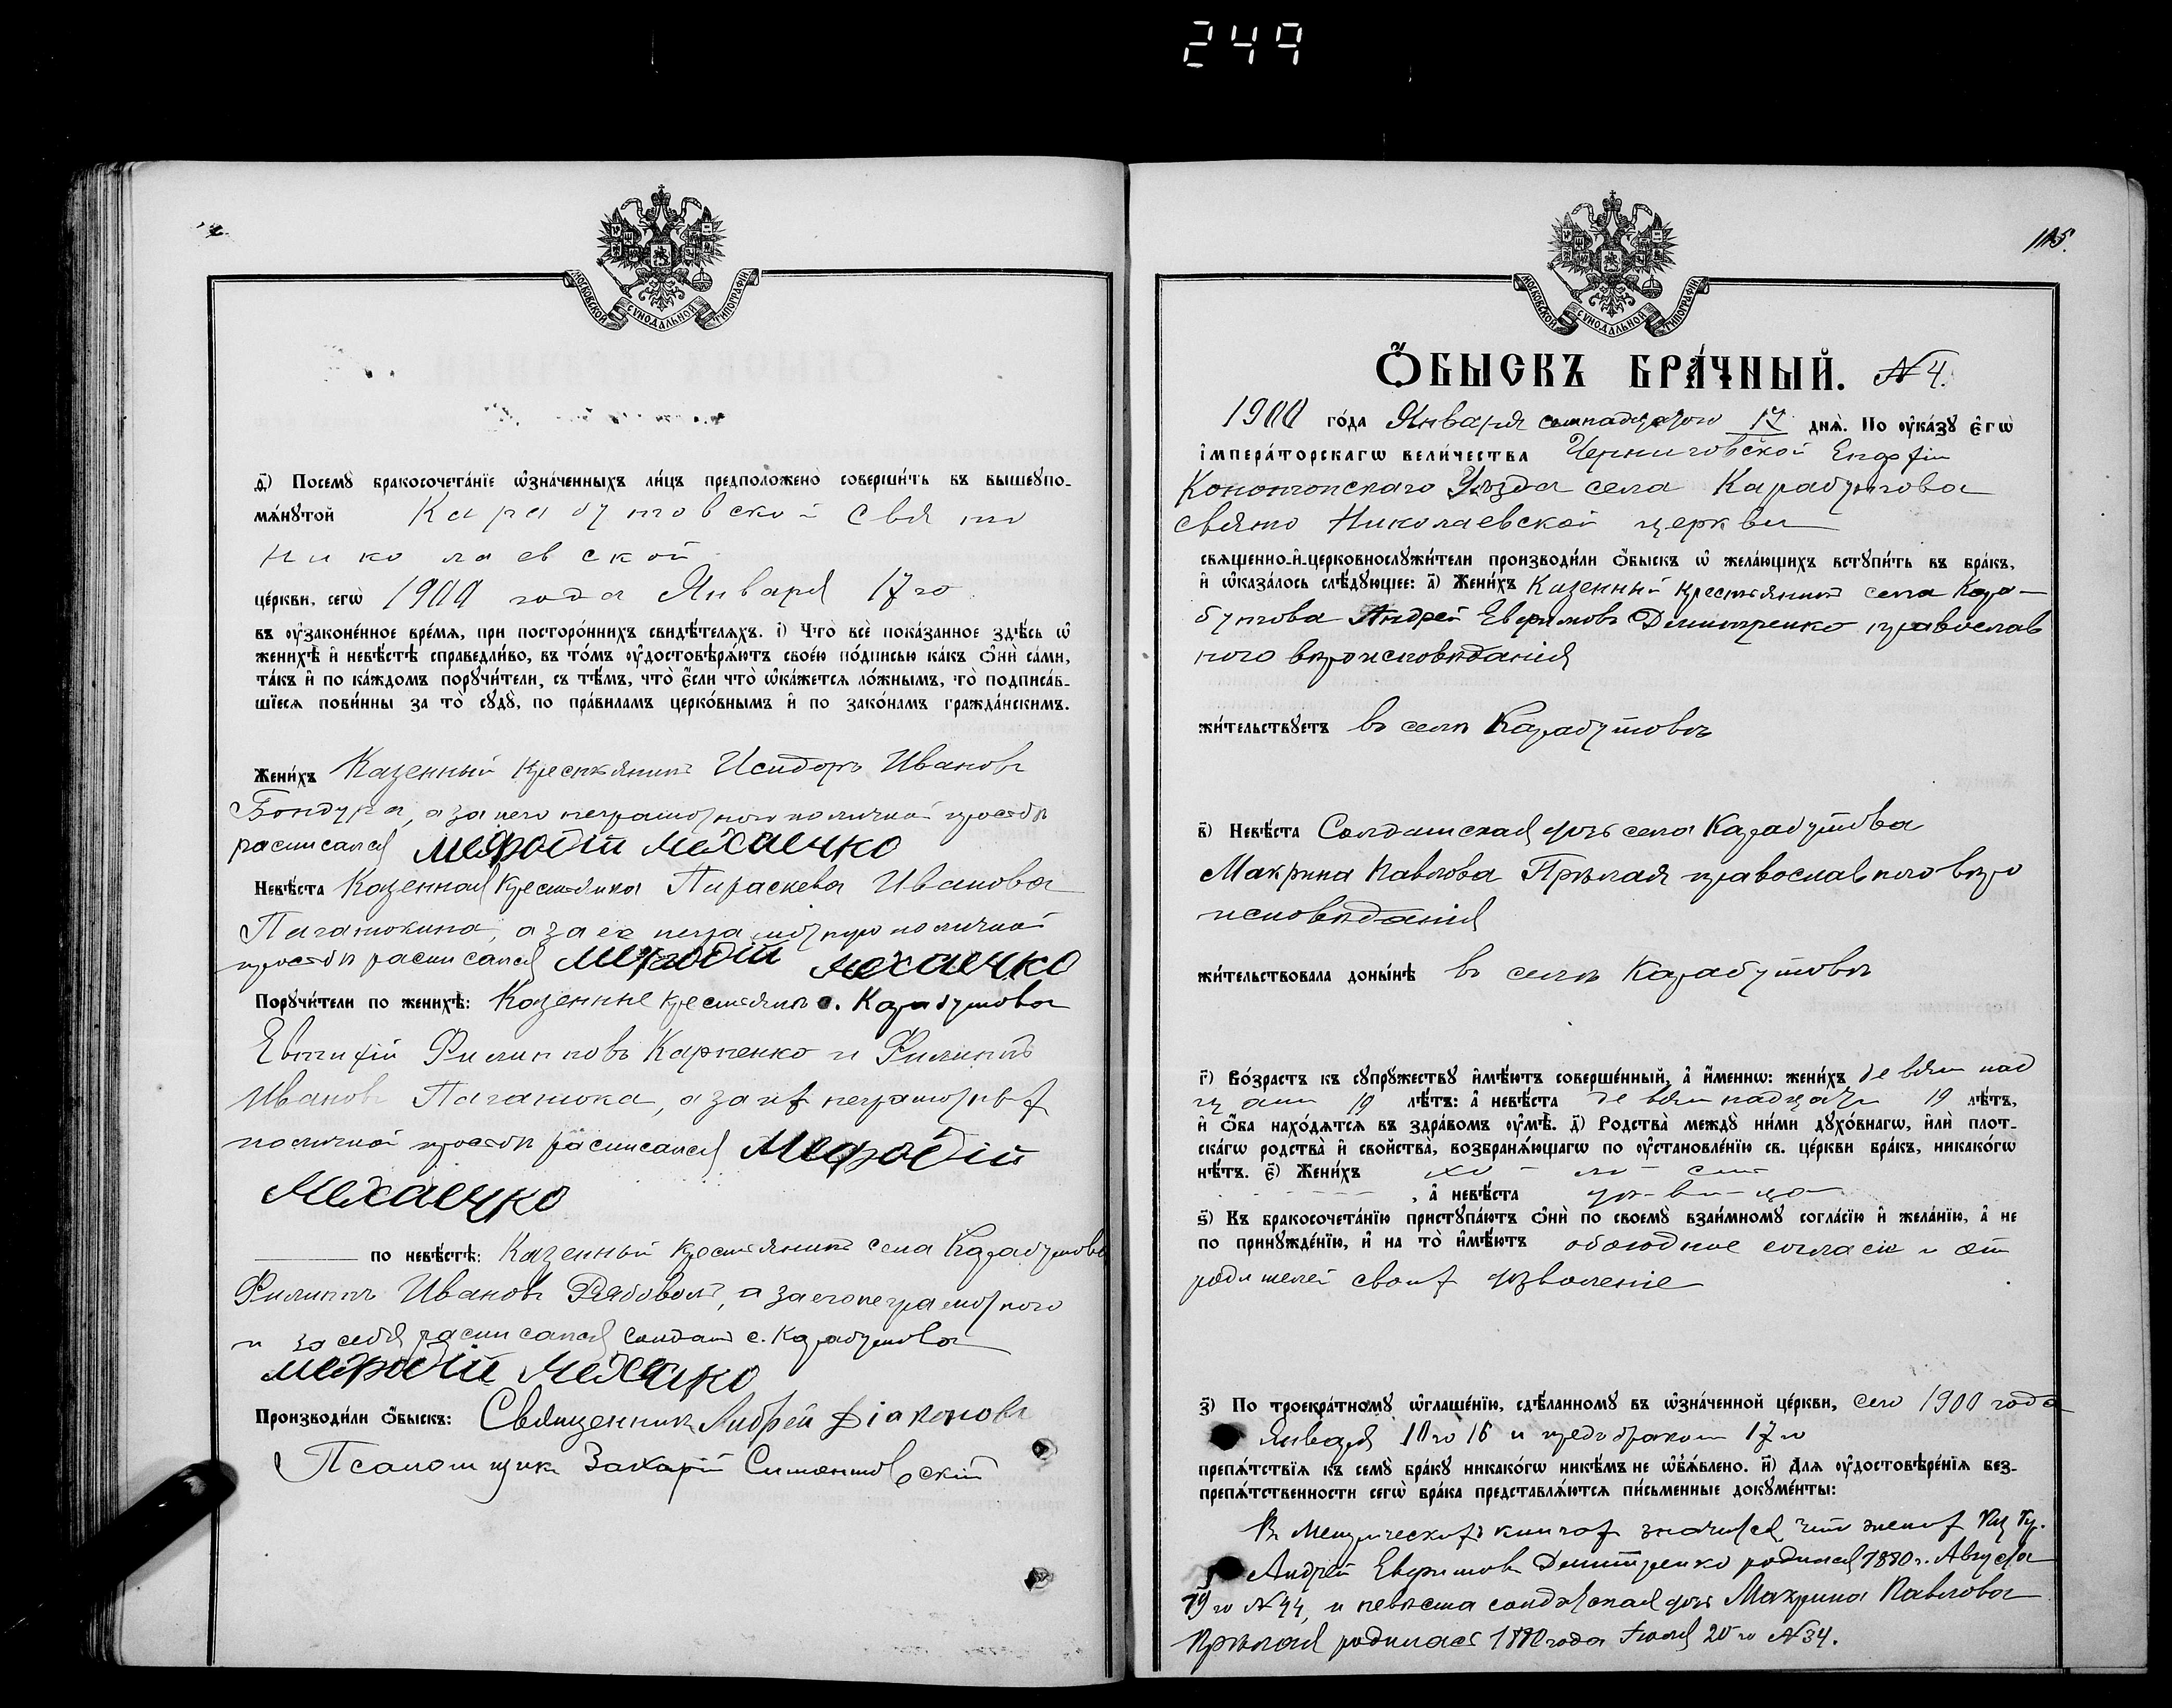 249
МОСКОВСКОЙ СѴНОДАЛЬНОЙ ТИПОГРАФІИ
д҃) Посемꙋ̀ бракосочета́нїе ѡ҆зна́ченныхъ ли́цъ предположено̀ соверши́ть въ вышеꙋпо-
мѧ́нꙋтой Карабутовской Свято
Николаевской
це́ркви, сегѡ̀ 1900 года Января 17го
въ ᲂу҆законе́нное вре́мѧ, при посторо́ннихъ свидѣ́телѧхъ. і҃) Что̀ всѐ пока́занное здѣ́сь ѡ҆
женихѣ̀ и҆ невѣ́стѣ справедли́во, въ то́мъ ᲂу҆достовѣрѧ́ютъ свое́ю по́дписью ка́къ ѻ҆нѝ са́ми,
та́къ и҆ по ка́ждомъ порꙋчи́тели, съ тѣ́мъ, что̀ є҆́сли что̀ ѡ҆ка́жетсѧ ло́жнымъ, то̀ подписа́в-
шїесѧ пови́нны за то̀ сꙋдꙋ̀, по пра́виламъ церко́внымъ и҆ по зако́намъ гражда́нскимъ.
Жени́хъ Казенный крестьянинъ Исидоръ Ивановъ
Бондура, а за него неграмотного по личной просьбѣ
расписался Мефодій Мехаечко
Невѣ́ста Казенная крестьянка Параскева Иванова
Пагатокина, а за ея неграмотную по личной
просьбѣ расписался Мефодій Мехаечко
Порꙋчи́тели по женихѣ̀: Казенные крестьяне с. Карабутова
Евтифій Филипповъ Карпенко и Филиппъ
Ивановъ Пагатока, а за их неграмотных
по личной просьбѣ расписался Мефодій
Мехаечко
по невѣ́стѣ: Казенный крестьянинъ села Карабутова
Филиппъ Ивановъ Рябоволъ, а за его неграмотного
и за себя расписался солдатъ с. Карабутова
Мефодій Мехаечко
Производи́ли ѻ҆́быскъ: Священникъ Андрей Діаконовъ
Псаломщикъ Захарій Симонтовскій
115.
МОСКОВСКОЙ СѴНОДАЛЬНОЙ ТИПОГРАФІИ
Ѻ҆́БЫСКЪ БРА́ЧНЫЙ. N 4.
1900 го́да Января семнадцатого 17 днѧ̀. По ᲂу҆ка́зꙋ є҆гѡ̀
і҆мпера́торскагѡ вели́чества Черниговской Епархіи
Конотопскаго Уѣзда села Карабутова
Свято Николаевской церкви
свѧщенно-и҆-церковнослꙋжи́тели производи́ли ѻ҆́быскъ ѡ҆ жела́ющихъ встꙋпи́ть въ бра́къ,
и҆ ѡ҆каза́лось слѣ́дꙋющее: а҃) Жени́хъ Казенный крестьянинъ села Кара-
бутова Андрей Евфимовъ Димитренко православ
ного вѣроисповѣданія
жи́тельствꙋетъ въ селѣ Карабутовѣ
в҃) Невѣ́ста Солдатская дочь села Карабутова
Макрина Павлова Прѣлая православного вѣро
исповѣданія
жи́тельствовала доны́нѣ въ селѣ Карабутовѣ
г҃) Во́зрастъ къ сꙋпрꙋ́жествꙋ и҆мѣ́ютъ соверше́нный, а҆ и҆́меннѡ: жени́хъ девятнад
цати 19 лѣ́тъ: а҆ невѣ́ста девятнадцати 19 лѣ́тъ,
и҆ ѻ҆́ба нахо́дѧтсѧ въ здра́вомъ ᲂу҆мѣ̀. д҃) Родства̀ междꙋ̀ ни́ми дꙋхо́внагѡ, и҆лѝ плот-
ска́гѡ родства̀ и҆ сво́йства, возбранѧ́ющагѡ по ᲂу҆становле́нїю св. це́ркви бра́къ, никако́гѡ
нѣ́тъ. є҃) Жени́хъ хо-ло-стъ
, а҆ невѣ́ста дѣ-ви-ца
ѕ҃) Къ бракосочета́нїю пристꙋпа́ютъ ѻ҆нѝ по своемꙋ̀ взаи́мномꙋ согла́сїю и҆ жела́нїю, а҆ не
по принꙋжде́нїю, и҆ на то̀ и҆мѣ́ютъ обоюдное согласіе и от
родителей своих дозволеніе
з҃) По троекра́тномꙋ ѡ҆глаше́нїю, сдѣ́ланномꙋ въ ѡ҆зна́ченной це́ркви, сего 1900 года
Января 10го 16 и предъ бракомъ 17го
препѧ́тствїѧ къ семꙋ̀ бра́кꙋ никако́гѡ никѣ́мъ не ѡ҆бъѧ́влено. и҃) Длѧ ᲂу҆достовѣре́нїѧ без-
препѧ́тственности сегѡ̀ бра́ка представлѧ́ютсѧ пи́сьменные докꙋме́нты:
Въ Метрическихъ книгахъ значится, что женихъ
Андрей Евфимовъ Димитренко родился 1880 г. Августа
19го N44, и невѣста солдатская дочь Макрина Павлова
Прѣлая родилась 1880 года Іюля 20го N34.